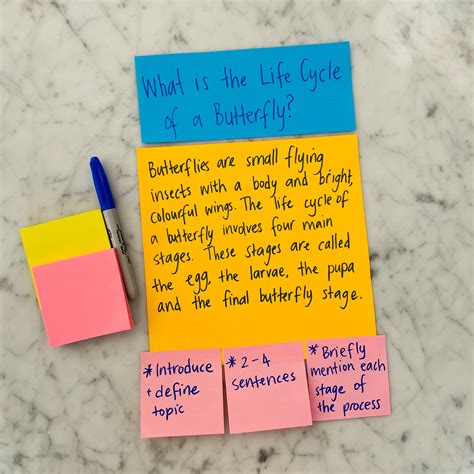 What is the Life Cycle
of a Butterfly?
Butterflies are small flying
insects with a body and bright,
colourful wings. The life cycle of
a butterfly involves four main
stages. These stages are called
the egg, the larvae, the pupa
and the final butterfly stage.
* Introduce
+ define
topic
* 2-4
sentences
* Briefly
mention each
stage of
the process